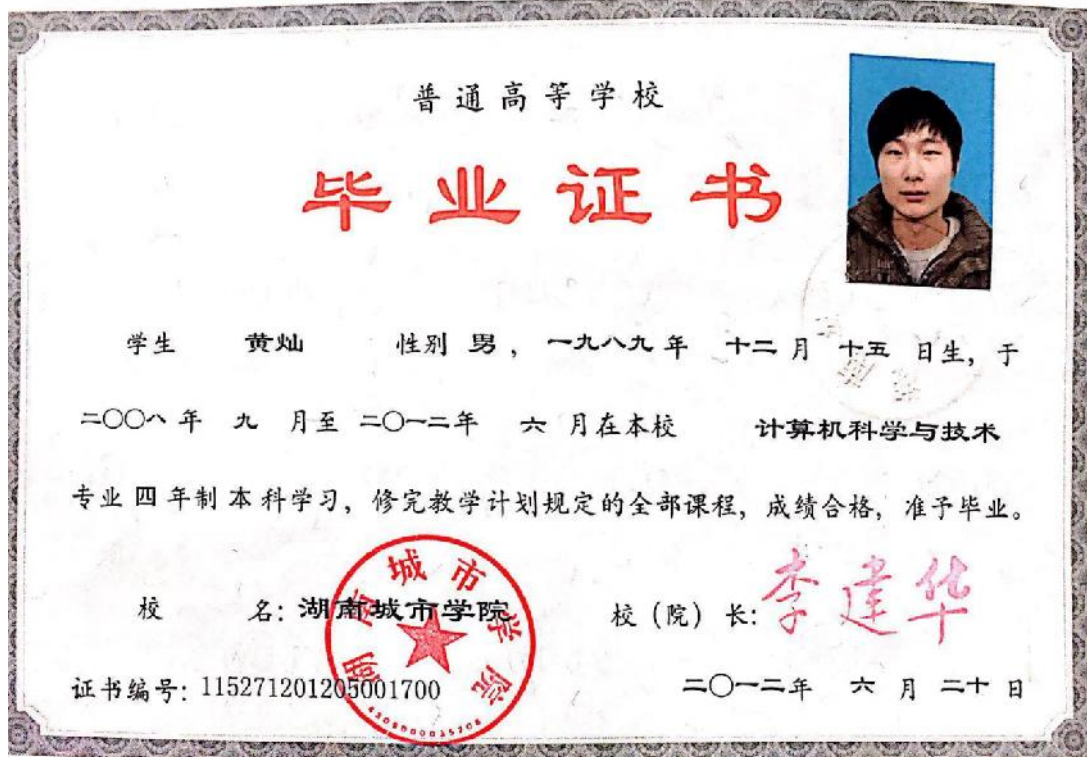 普通高等学校
毕业证书
学生 黄灿 性别 男，一九八九年 十二月 十五 日生，于
二〇〇八年 九 月至 二〇一二年 六 月在本校 计算机科学与技术
专业 四 年制 本科学习，修完教学计划规定的全部课程，成绩合格，准予毕业。
校 名：湖南城市学院 校（院）长：李建华
湖南城市学院
证书编号：115271201205001700 二〇一二年 六 月 二十 日